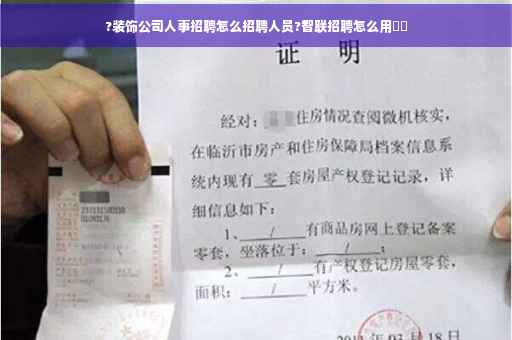 ?装饰公司人事招聘怎么招聘人员?智联招聘怎么用
证 明
经对：住房情况查阅微机核实，
在临沂市房产和住房保障局档案信息系
统内现有 零 套房屋产权登记记录，详
细信息如下：
1、 / 有商品房网上登记备案
零套，坐落位于： / ；
2、 / 有产权登记房屋零套，
面积： / 平方米。
03月18日